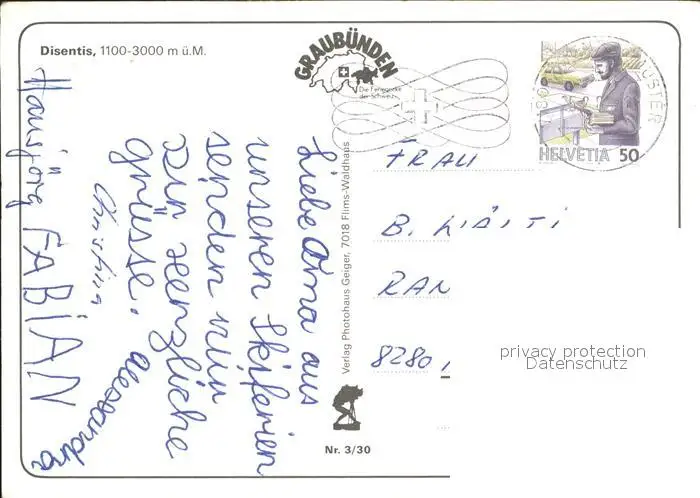 Disentis, 1100-3000 m ü.M.
GRAUBÜNDEN
Die Ferienecke
der Schweiz
HELVETIA 50
Liebe Oma aus
unseren Skiferien
senden wir
Dir herzliche
grüsse.
Alessandra
Christina
Hansjörg FABiAN
Verlag Photohaus Geiger, 7018 Flims-Waldhaus
FRAU
B.
RAN
8280
privacy protection
Datenschutz
Nr. 3/30